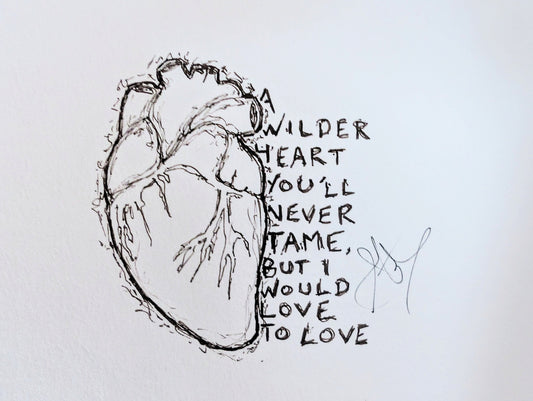 A
WILDER
HEART
YOU'LL
NEVER
TAME,
BUT I
WOULD
LOVE
TO LOVE